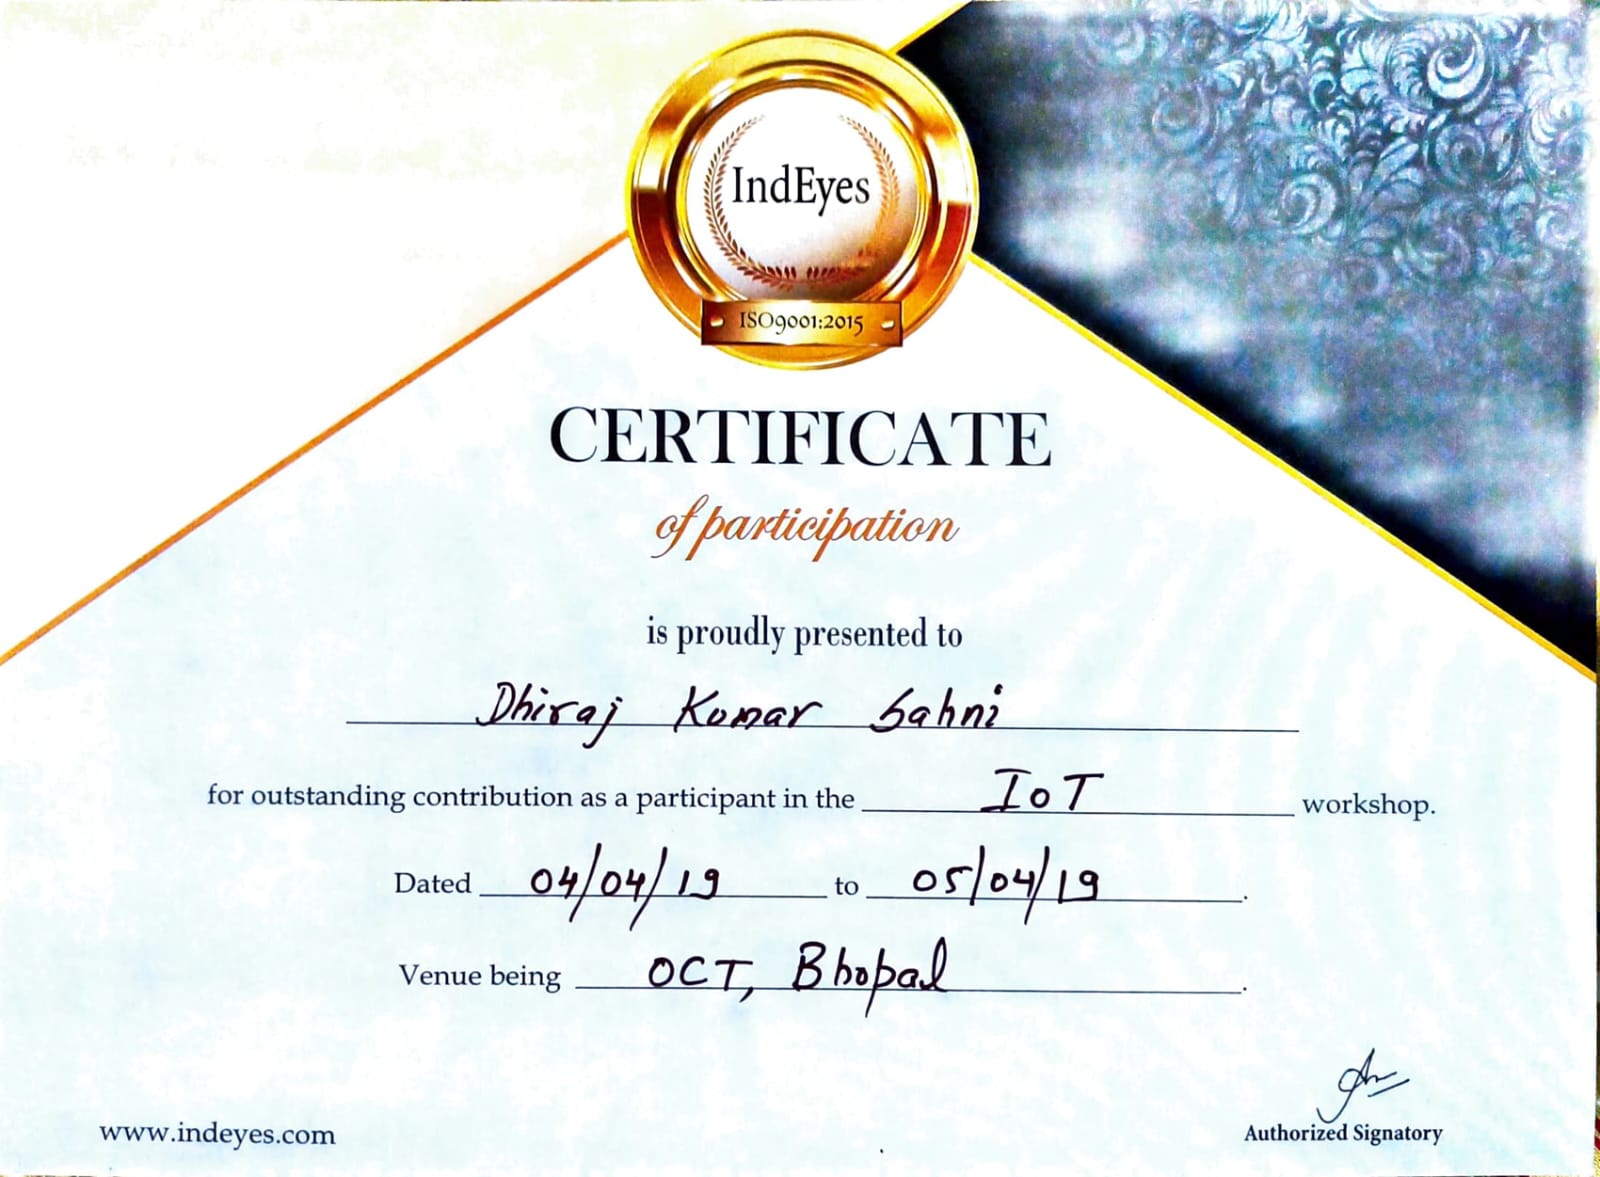 IndEyes
ISO9001:2015
CERTIFICATE
of participation
is proudly presented to
Dhiraj Kumar Sahni
for outstanding contribution as a participant in the IoT workshop.
Dated 04/04/19 to 05/04/19.
Venue being OCT, Bhopal.
www.indeyes.com
Authorized Signatory